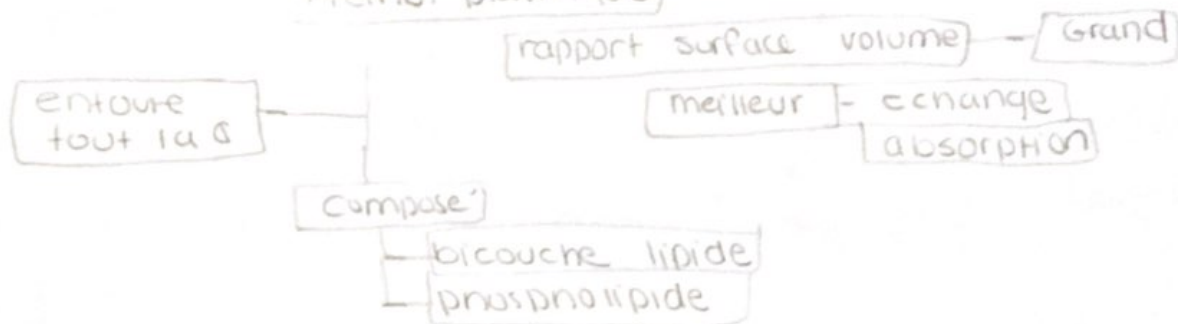 rapport surface volume - Grand
entoure
tout la
meilleur - echange
absorption
composé
bicouche lipide
phospholipide